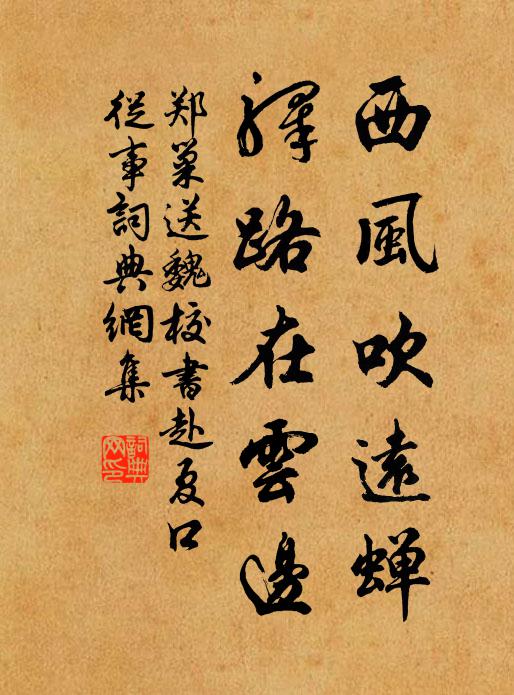 西風吹遠蟬
驛路在雲邊
郑巢送魏校書赴夏口
從事詞典網集
詞典網印